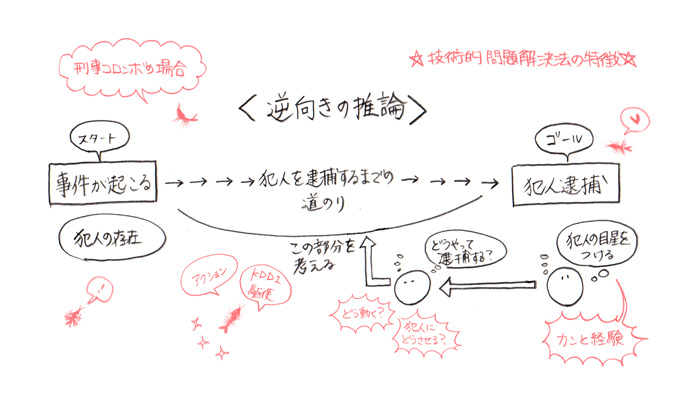 刑事コロンボの場合
☆技術的問題解決法の特徴☆
<逆向きの推論>
スタート
ゴール
事件が起こる
→→→→犯人を逮捕するまでの→→→→
道のり
犯人逮捕
犯人の存在
この部分を
考える
どうやって
逮捕する?
犯人の目星を
つける
!
アクション
KDDI
駆使
どう動く?
犯人に
どうさせる?
カンと経験